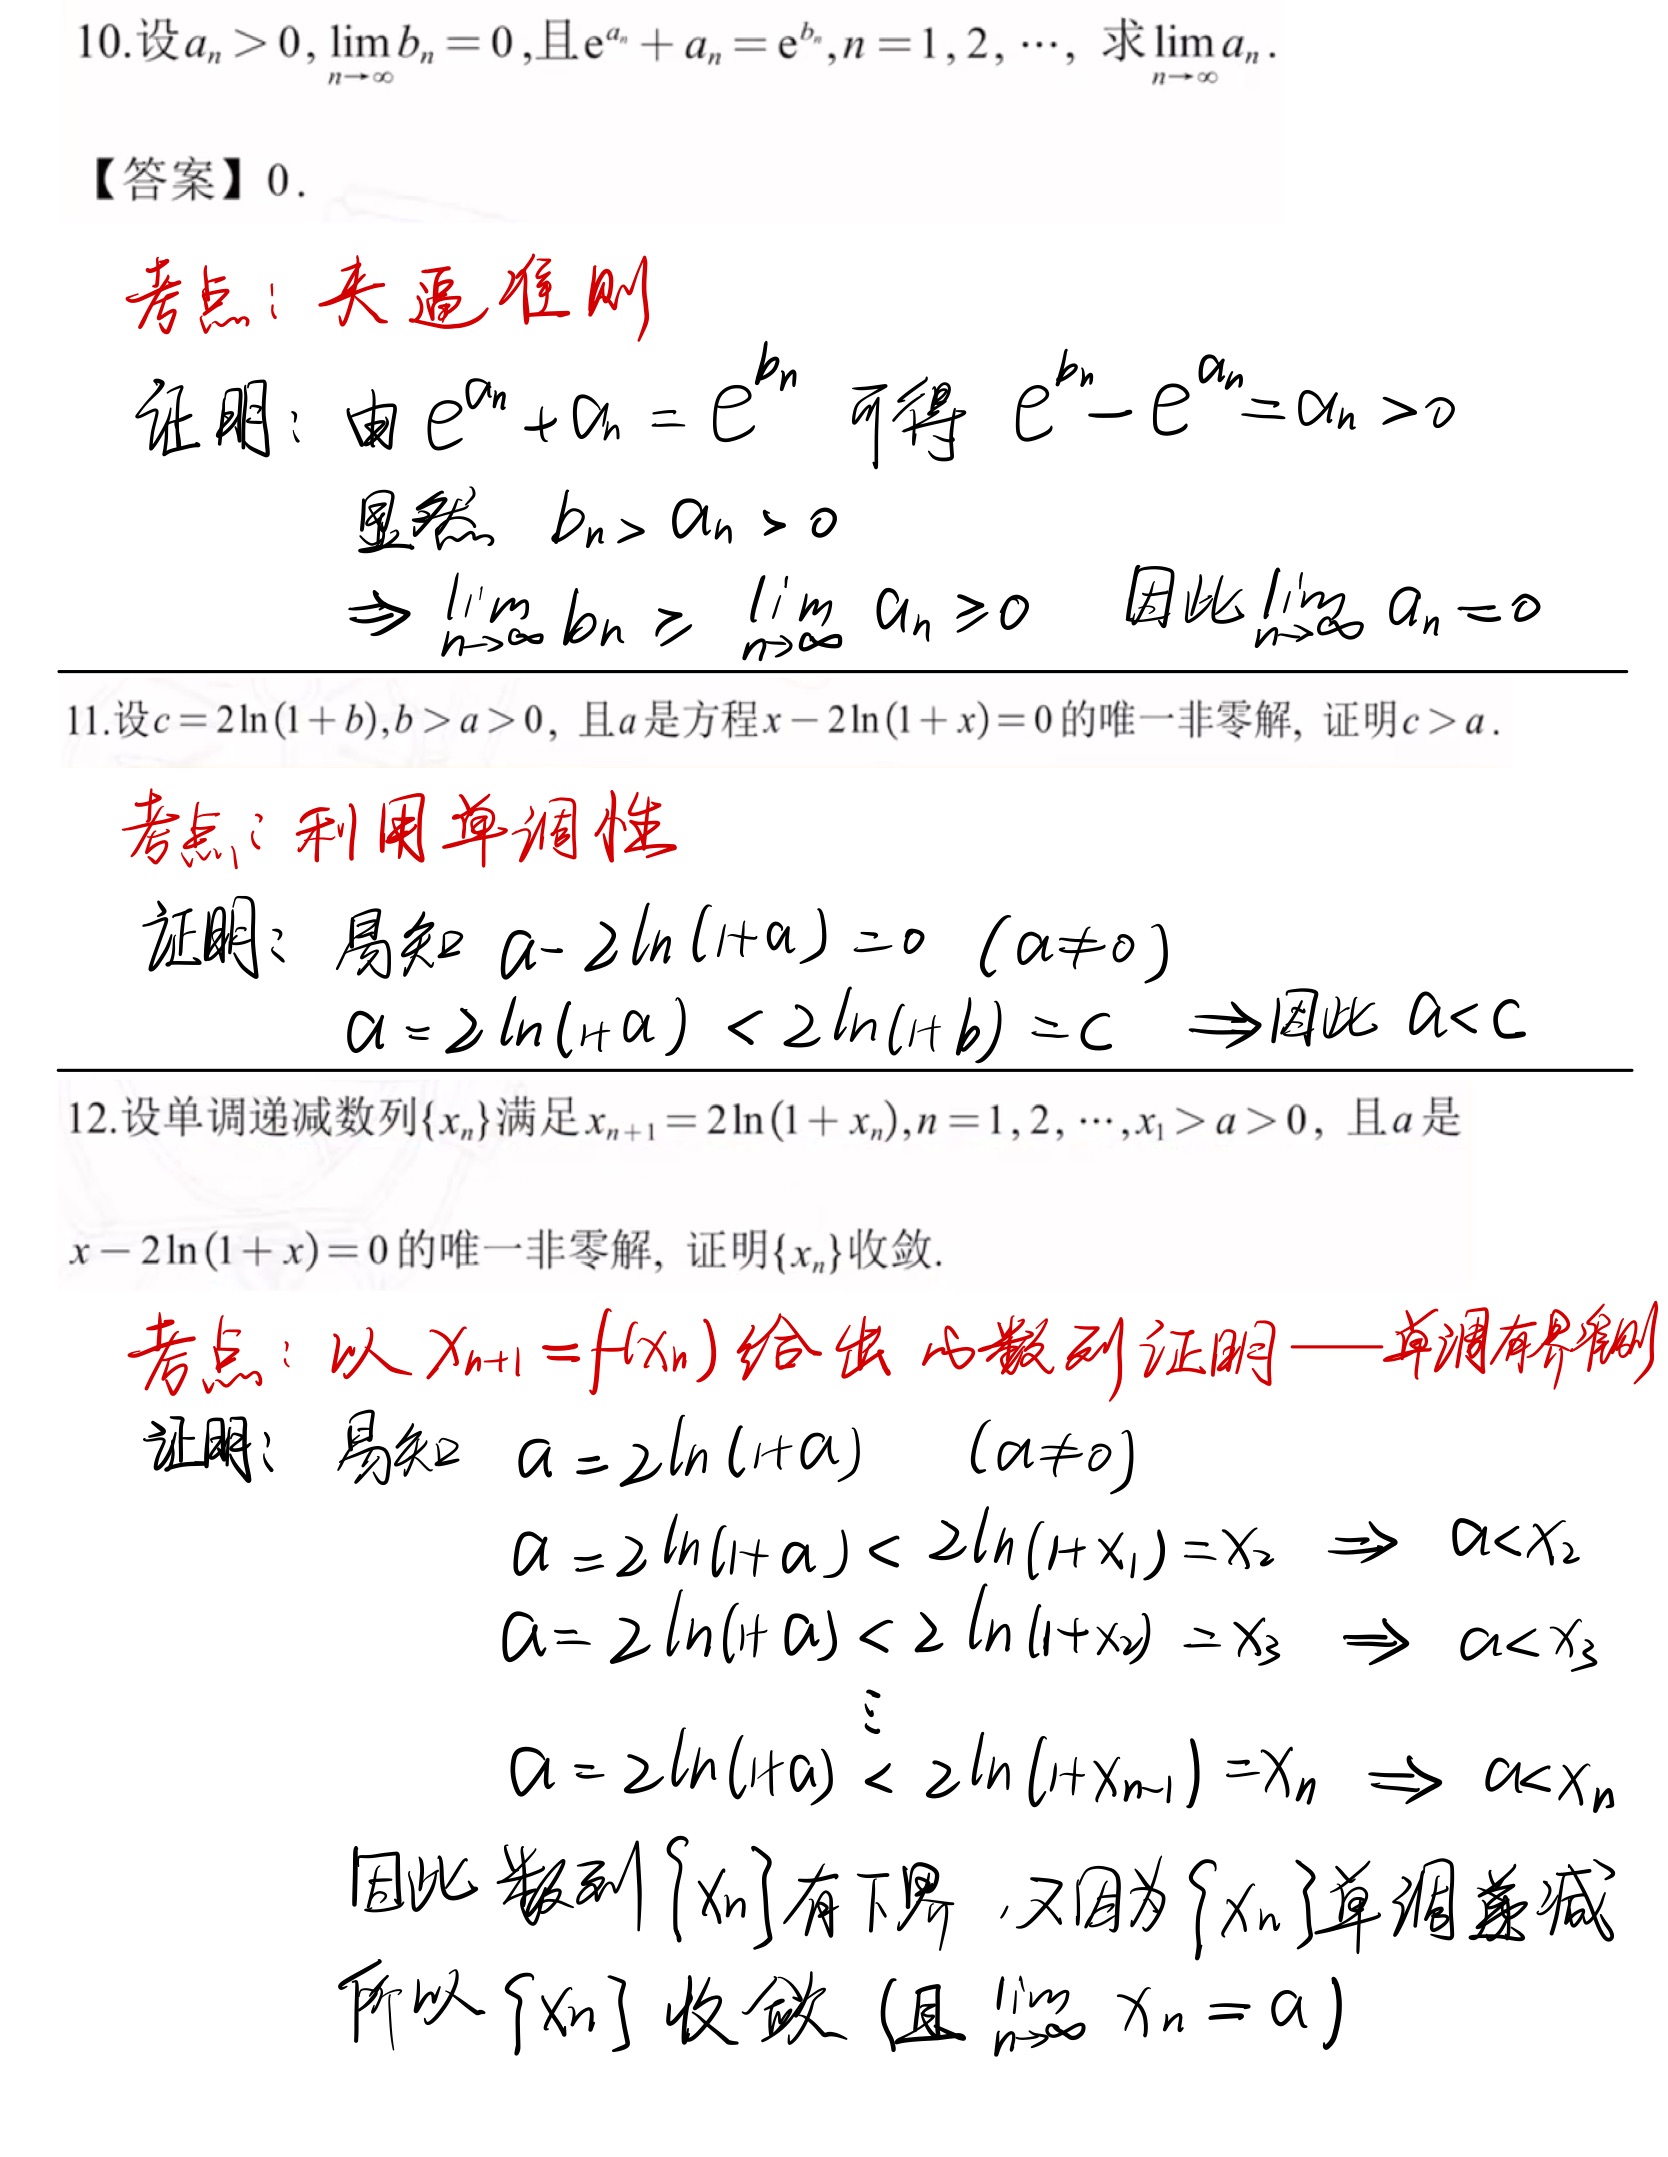 10.设aₙ > 0, lim_{n→∞} bₙ = 0,且e^{aₙ} + aₙ = e^{bₙ}, n = 1, 2, ⋯, 求lim_{n→∞} aₙ.
【答案】0.
考点: 夹逼准则
证明: 由 e^{aₙ} + aₙ = e^{bₙ} 可得 e^{bₙ} − e^{aₙ} = aₙ > 0
显然 bₙ > aₙ > 0
⇒ lim_{n→∞} bₙ ≥ lim_{n→∞} aₙ ≥ 0 因此 lim_{n→∞} aₙ = 0
11.设c = 2ln(1 + b), b > a > 0, 且a是方程x − 2ln(1 + x) = 0的唯一非零解, 证明c > a.
考点: 利用单调性
证明: 易知 a − 2ln(1+a) = 0 (a≠0)
a = 2ln(1+a) < 2ln(1+b) = c ⇒因此 a<c
12.设单调递减数列{xₙ}满足xₙ₊₁ = 2ln(1 + xₙ), n = 1, 2, ⋯, x₁ > a > 0, 且a是
x − 2ln(1 + x) = 0的唯一非零解, 证明{xₙ}收敛.
考点: 以 xₙ₊₁ = f(xₙ) 给出的数列证明——单调有界准则
证明: 易知 a = 2ln(1+a) (a≠0)
a = 2ln(1+a) < 2ln(1+x₁) = x₂ ⇒ a<x₂
a = 2ln(1+a) < 2ln(1+x₂) = x₃ ⇒ a<x₃
⋮
a = 2ln(1+a) < 2ln(1+xₙ₋₁) = xₙ ⇒ a<xₙ
因此数列{xₙ}有下界, 又因为{xₙ}单调递减
所以{xₙ}收敛 (且 lim_{n→∞} xₙ = a)